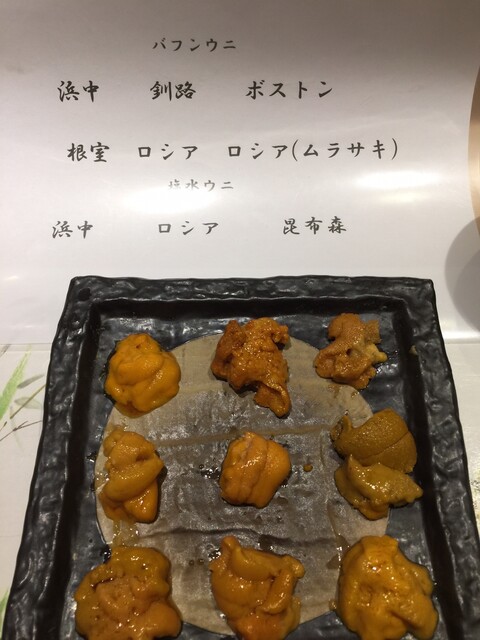 バフンウニ
浜中 釧路 ボストン
根室 ロシア ロシア(ムラサキ)
塩水ウニ
浜中 ロシア 昆布森